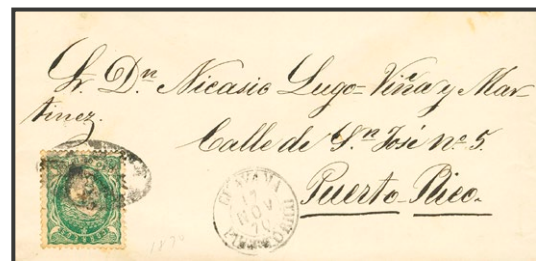 Sr. Dn. Nicasio Lugo=Viña y Mar-
tinez.
Calle de Sn. José nº 5.
Puerto-Rico.
17
NOV
1870